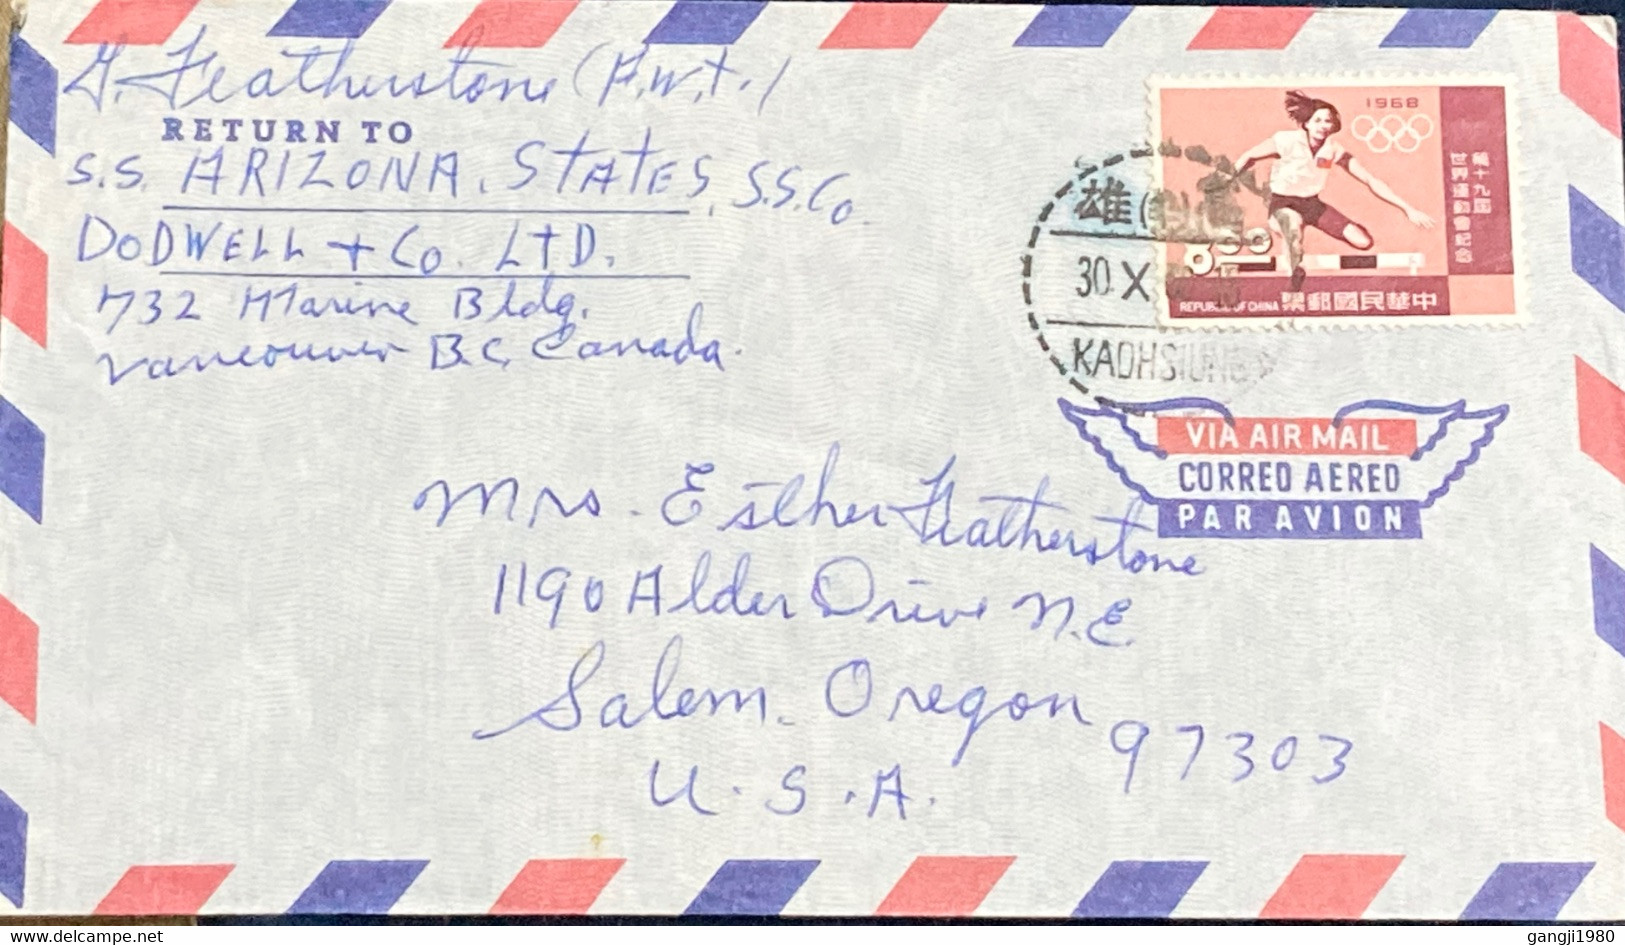 G. Featherstone (P.W.T.)
RETURN TO
S.S. ARIZONA, STATES, S.S. Co.
DODWELL + Co. LTD.
732 Marine Bldg.
Vancouver B.C. Canada.
1968
第十九屆
世界運動會紀念
REPUBLIC OF CHINA 票郵國民華中
雄
30 X
KAOHSIUNG
VIA AIR MAIL
CORREO AEREO
PAR AVION
Mrs. Esther Featherstone
1190 Alder Drive N.E.
Salem. Oregon
97303
U.S.A.
gangji1980